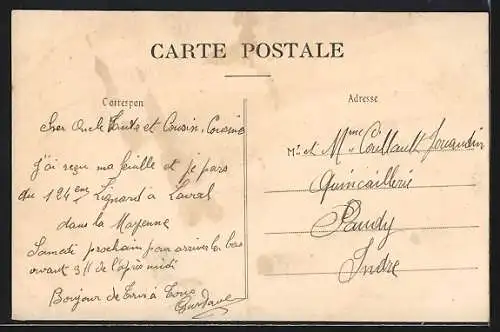 CARTE POSTALE
Correspon
Adresse
Cher Oncle Tante et Cousin, Cousine
J'ai reçu ma feuille et je pars
du 124 eme Lignard à Laval
dans la Mayenne
Samedi prochain pour arriver la bas
avant 3 H de l'après midi
Bonjour de Tous à Tous
Mr et Mme
Quincaillerie
Paudy
Indre